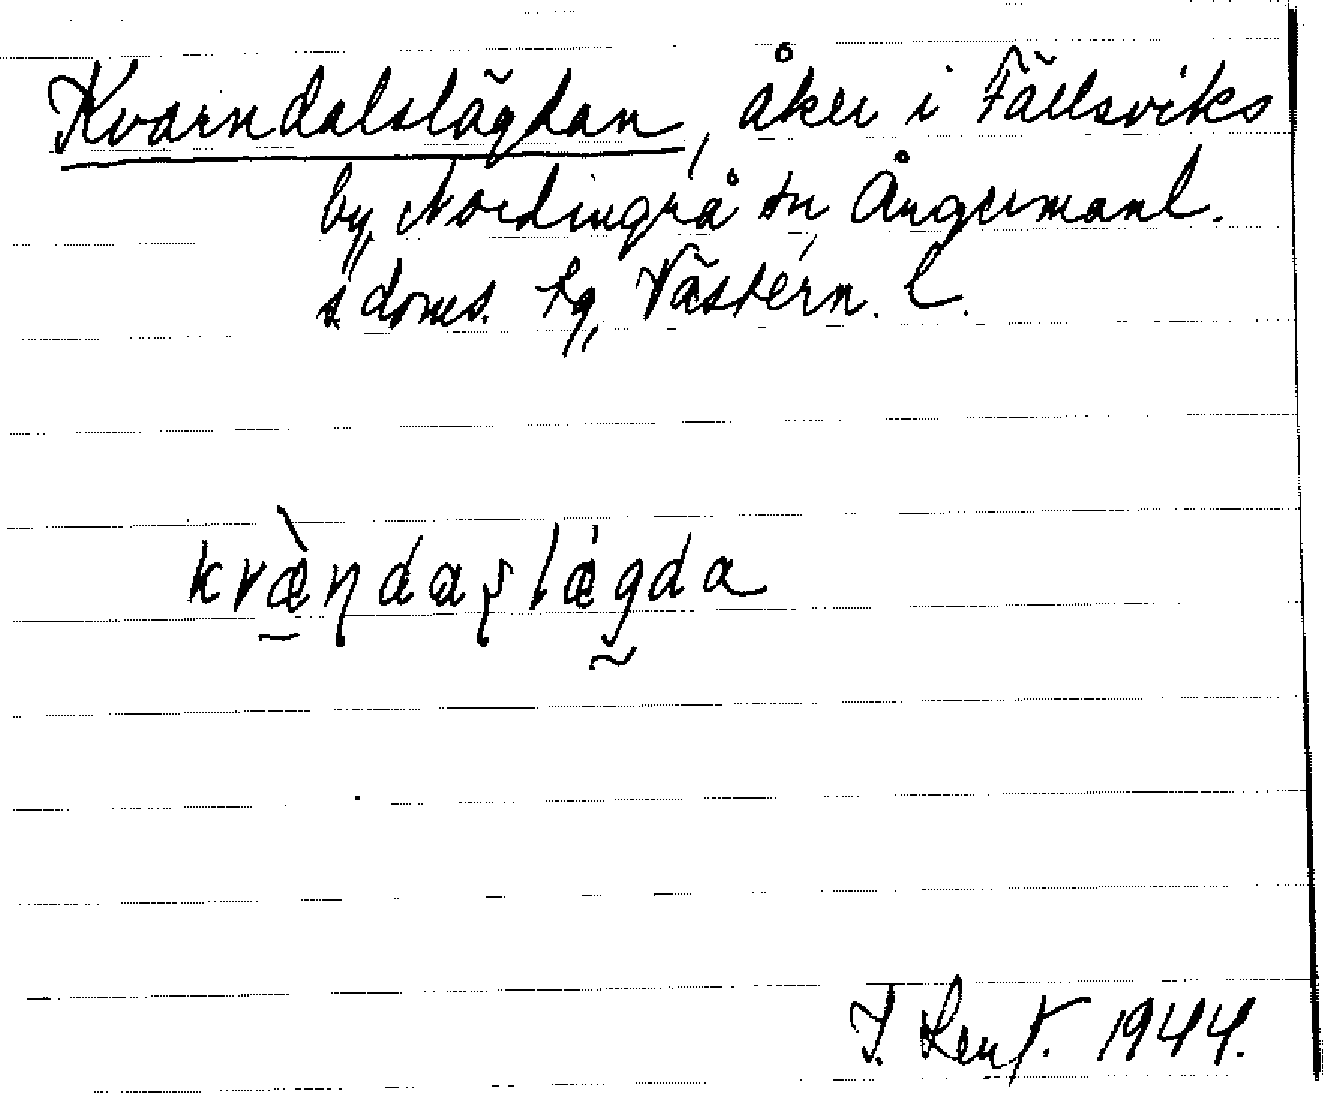 Kvarndalslägdan, åker i Fällsviks
by, Nordingrå sn, Ångermanl.
s. doms. tg, Västern. l.
kvæ̀ndaʂlǽgda
1944.